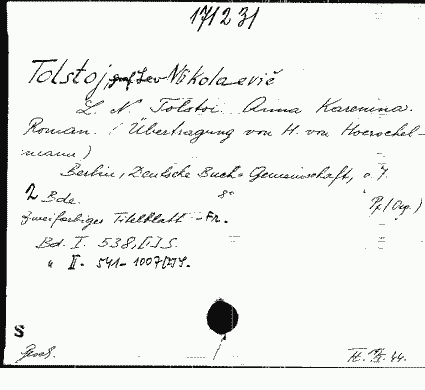 171231
Tolstoj, graf Lev Nikolaevič
L. N. Tolstoi. Anna Karenina.
Roman. (Übertragung von H. von Hoerschel-
mann)
Berlin, Deutsche Buch-Gemeinschaft, o. J.
2 Bde. 8°
Zweifarbiges Titelblatt - Fr. Pf (Org.)
Bd. I. 538, [1] S.
" II. 541-1007 [1] S.
S
Gesch. 44.